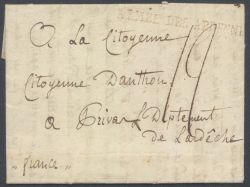 ARMÉE DES ARDENNES
A La Citoyenne
Citoyenne Danthon
a Privas Dptement
de Lardêche
france